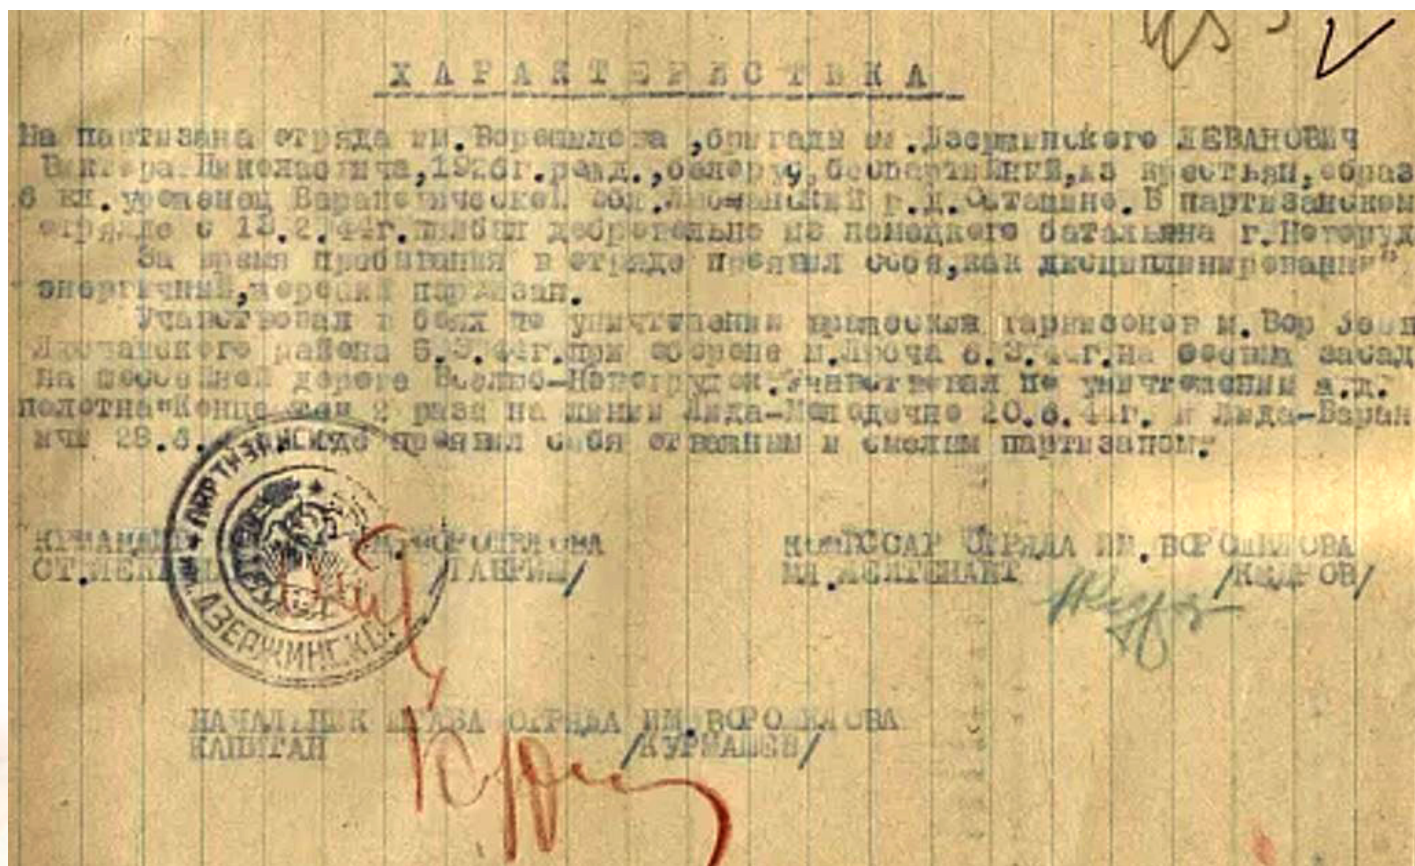 ХАРАКТЕРИСТИКА
На партизана отряда им.Ворошилова ,бригады им.Дзержинского ЛЕВАНОВИЧ
Виктора Николаевича,1926г.рожд.,белорус,беспартийный,из крестьян,образ
6 кл.уроженец Барановической обл.Любчанский р.д.Осташино.В партизанском
отряде с 13.2.44г.прибыл добровольно из немецкого батальона г.Новоруд
За время пребывания в отряде проявил себя,как дисциплинирований,
энергичный, партизан.
Участвовал в боях по уничтожении вражеских гарнизонов м.
Любчанского района 6.3.44г.при обороне м.Любча 6.3.44г.на засад
на шоссейной дороге -Новогрудок.Участвовал по уничтожении ж.д.
полотна"Концертам 2 раза на линии Лида-Молодечно 20.6.44г. и Лида-Баран
ичи 28.6. проявил себя отважным и смелым партизаном.
КОМАНДИР ИМ.ВОРОШИЛОВА
СТ.ЛЕЙТЕНАНТ /ГАВРИШ/
КОМИССАР ОТРЯДА ИМ.ВОРОШИЛОВА
МЛ.ЛЕЙТЕНАНТ /КИДРОВ/
ПАРТИЗАНСК ДЗЕРЖИНСКО
НАЧАЛЬНИК ШТАБА ОТРЯДА ИМ.ВОРОШИЛОВА
КАПИТАН /КУРМАШЕВ/